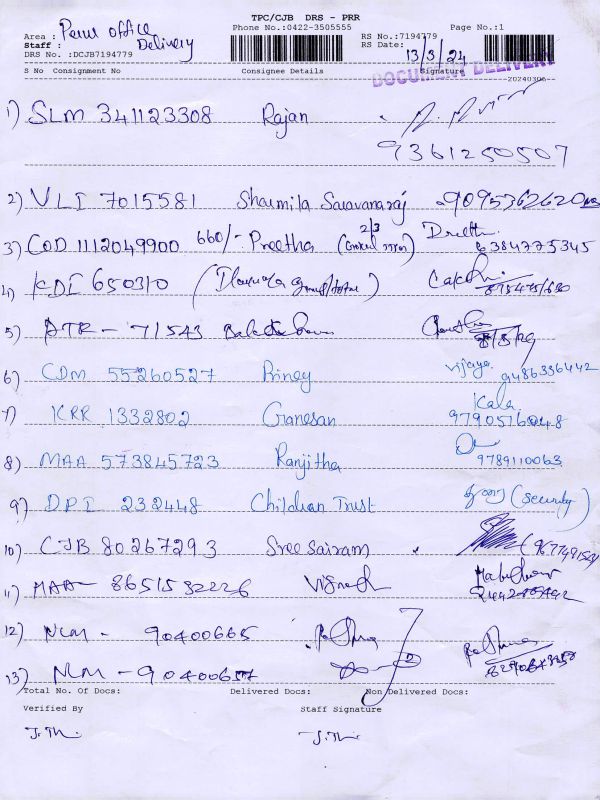 TPC/CJB DRS - PRR
Area : Perur office Delivery
Phone No.:0422-3505555
Page No.:1
Staff :
RS No.:7194779
DRS No. :DCJB7194779
RS Date: 13/3/24
DOCUMENT DELIVERY
S No Consignment No Consignee Details Signature 20240306
1) SLM 341123308 Rajan
9361250507
2) VLI 7015581 Sharmila Saravanaraj 9095362620
3) COD 1112049900 660/- Preetha 2/3 6384775345
4) KDI 650310
5) ATR - 71543
6) CDM 55260527 Riney Vijaya 9486336442
7) KRR 1332802 Ganesan Kala 9790516048
8) MAA 573845723 Ranjitha 9789110063
9) DPI 232448 Children Trust (security)
10) CJB 80267293 Sree Sairam
11) MAA - 8651532226 Vignesh
12) NLM - 90400665
13) NLM - 90400657
Total No. Of Docs: Delivered Docs: Non Delivered Docs:
Verified By Staff Signature